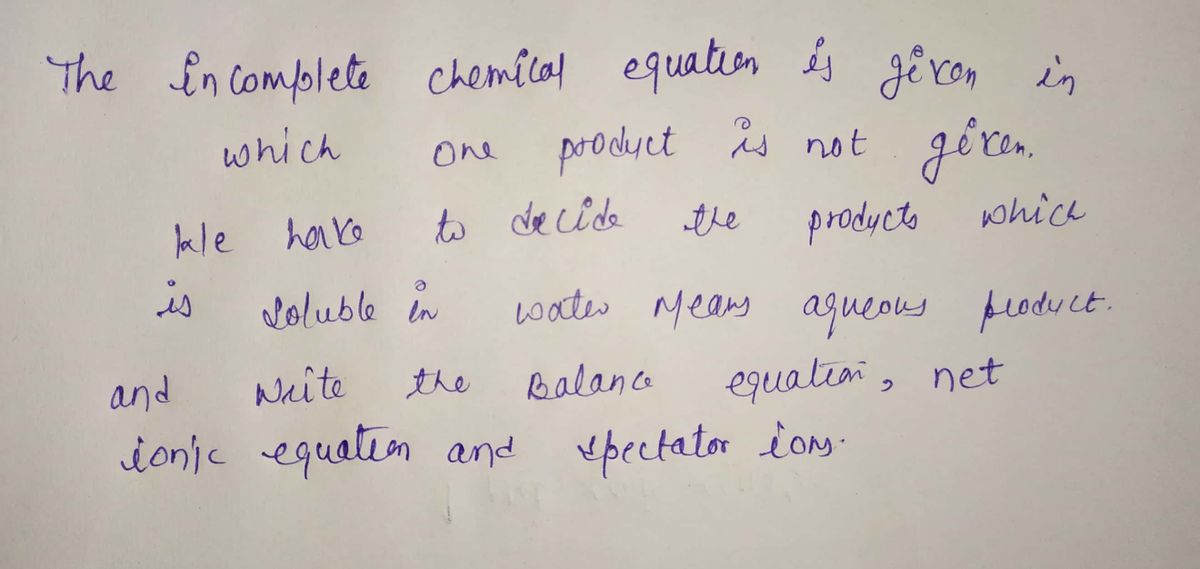 The incomplete chemical equation is given in
which one product is not given.
We have to decide the products which
is soluble in water means aqueous product.
and write the Balance equation, net
ionic equation and spectator ions.